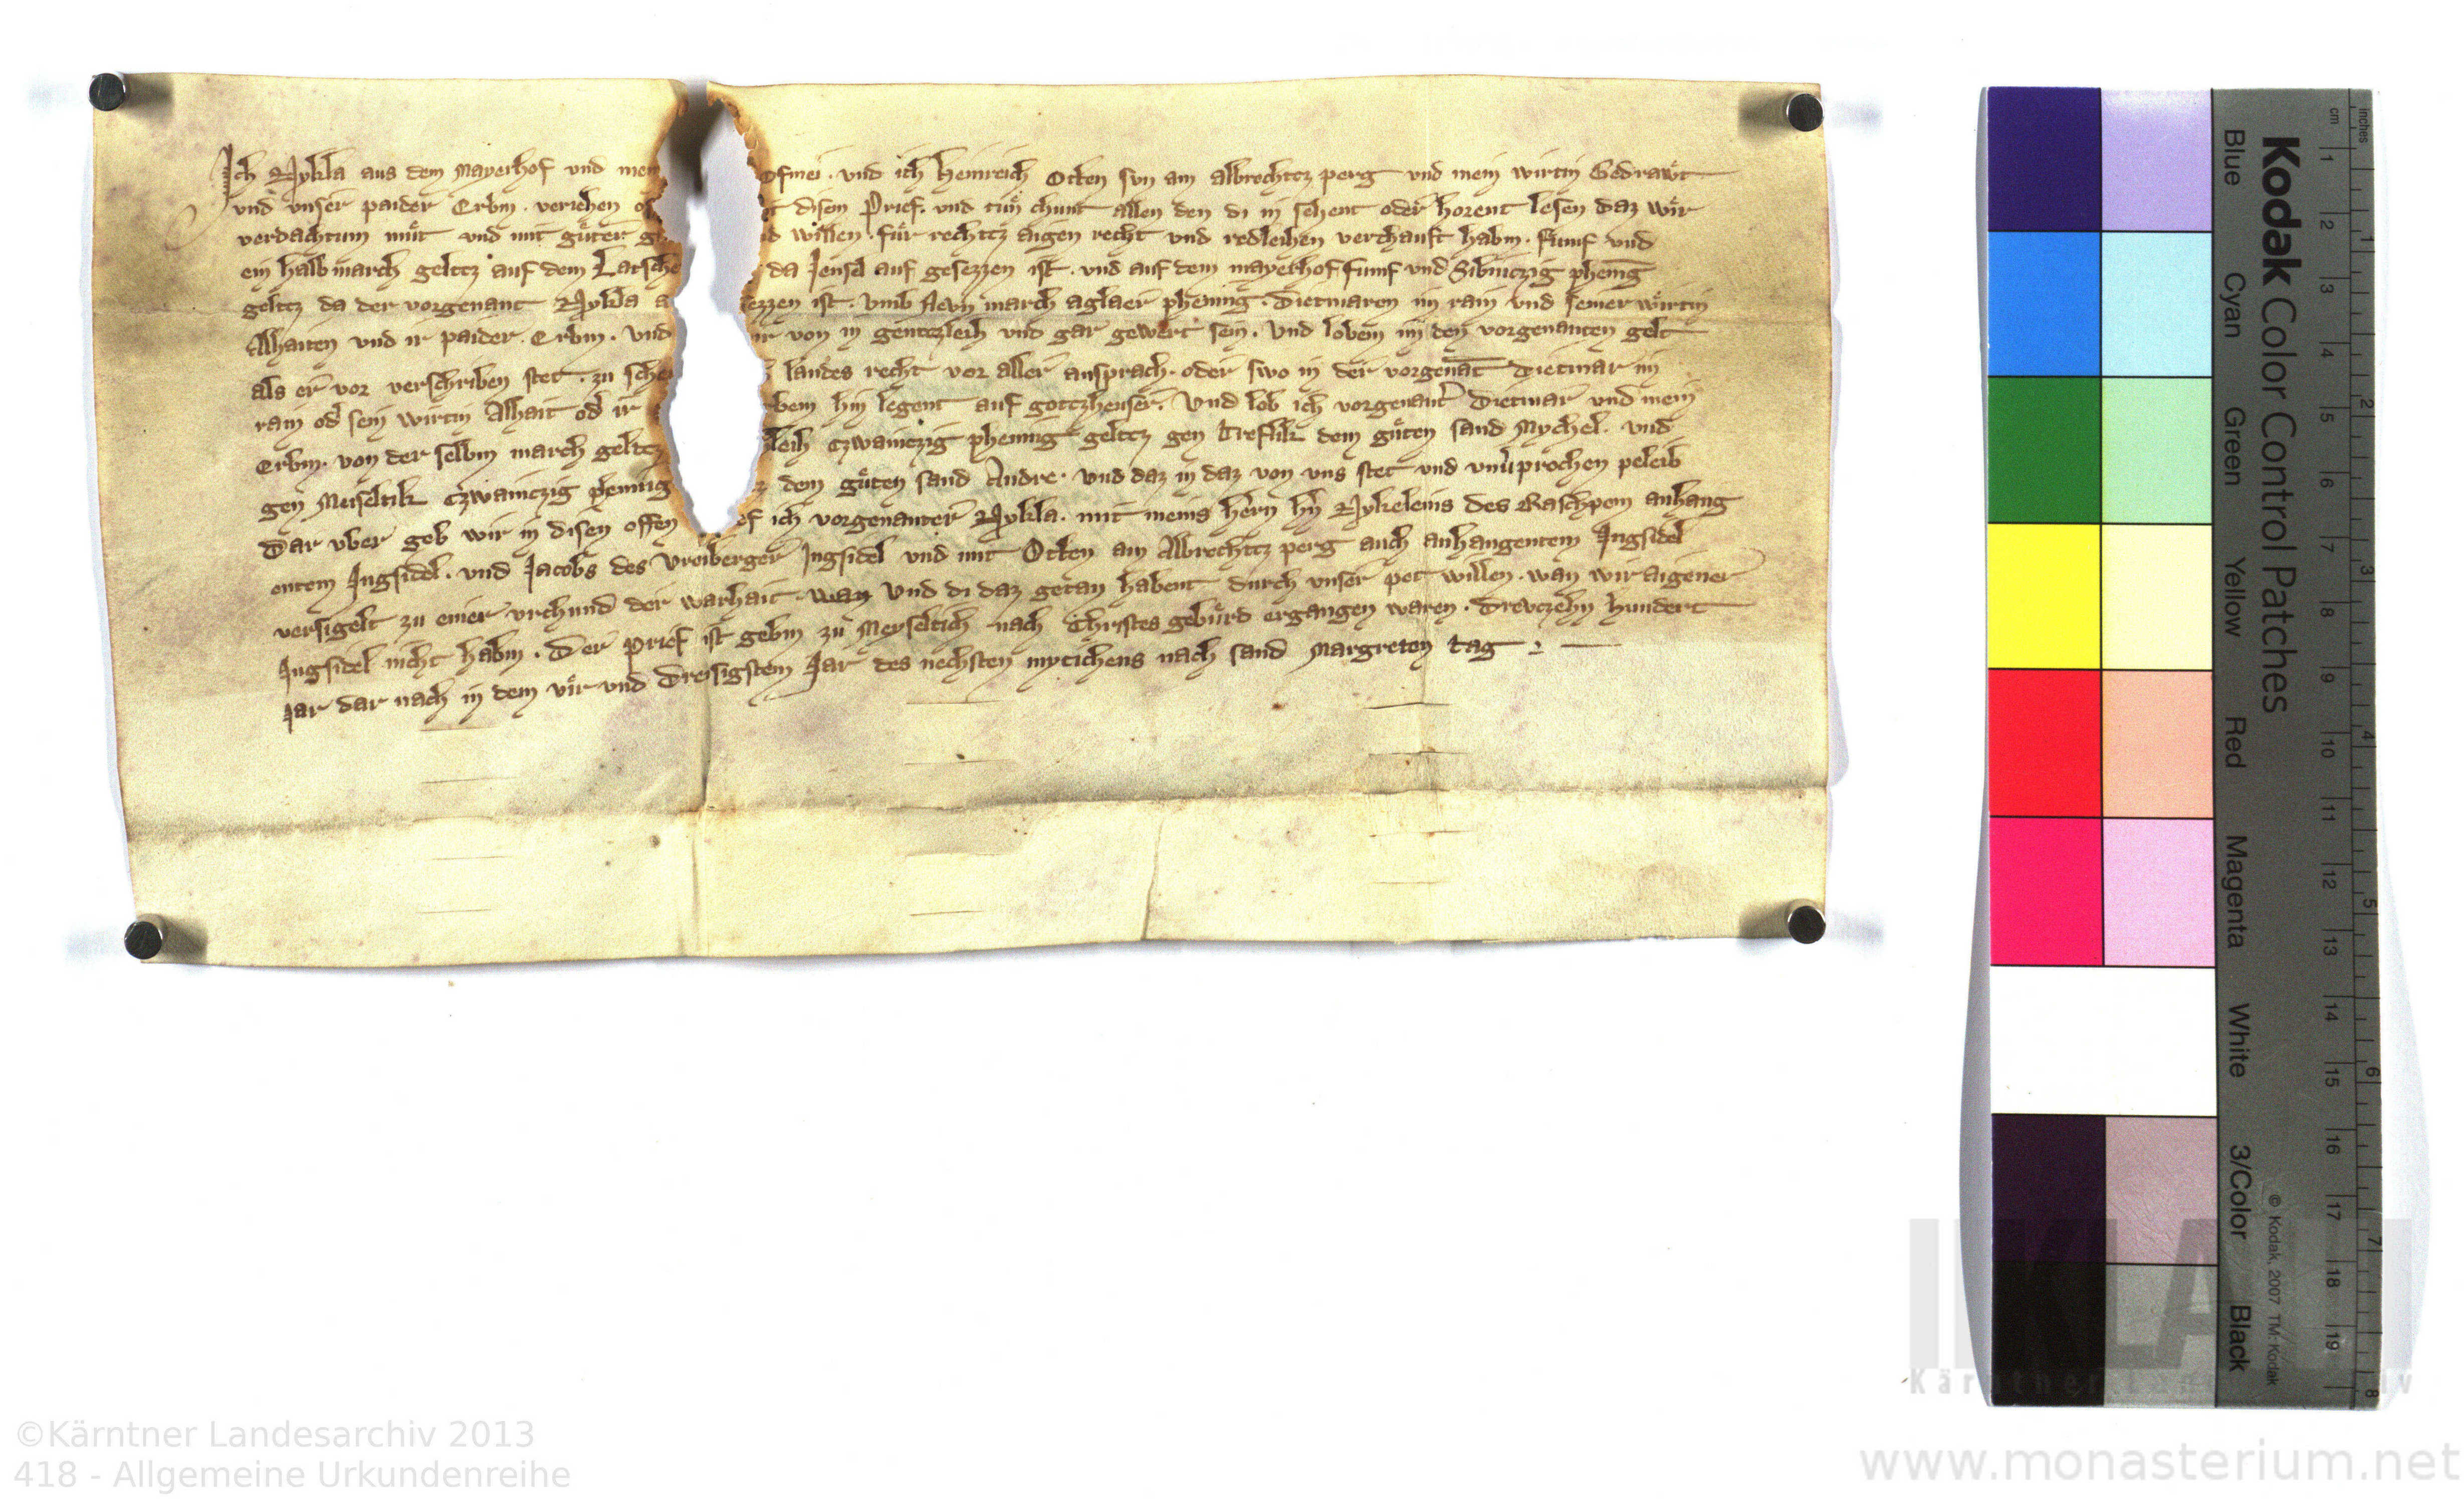 Ich Nykla aus dem Mayerhof vnd mein ofmei . vnd ich Heinreich Otten svn am albrechtcz perg vnd mein wirtin Gedrawt
vnd vnser paider Erbm . veriehen disem Prief . vnd tvn chunt allen den di in sehent oder horent lesen daz wir
verdachtum müt vnd mit güter willen . für rechtcz aigen recht vnd redleihen verchauft habm . fumf vnd
ein halb march geltcz auf dem Latsche da Jensel auf gesezzen ist . vnd auf dem mayerhof fumf vnd Sibniczig phening
geltcz da der vorgenant Nykla a ezzen ist . vmb Nevn march aglaer phening . Dietmaren im rain vnd seiner wirtin
Alhaiten vnd ir paider . Erbm . vnd wir von in gentczleih vnd gar gewert sein . Vnd lobem im den vorgenanten gelt
als er vor verschriben stet . zu sche landes recht vor aller ansprach . oder swo in der vorgenāt Dietmar im
rain od sein wirtin Alhait od ir rbem hin legent auf gottczheuser . Vnd lob ich vorgenantˀ Dietmar vnd mein
Erbm . von der selbm march geltcz leih czwainczig phennig geltcz gen Treflik dem güten sand Mychel . vnd
gen Meiseltik czwainczig phennig dem güten sand Andre . vnd daz in daz von vns stet vnd vnuˀprochen peleib
Dar vber geb wir in disen offen ef ich vorgenanter Nykla . mit meins hern hˀn Nykeleins des Raschpem anhang
entem Jngsidel . vnd Jacobs des Vreiberger Jngsidel vnd mit Otten am Albrechtcz perg auch anhangentem Jngsidel
versigelt zu einer vrchund der warhait . wan Vnd di daz getan habent durch vnser pet willen . wan wir aigener
Jngsidel nicht habm . Der prief ist gebm zu Meyseltich nach Christes gebürd ergangen waren . Drevczehn hundert
Jar dar nach in dem vir vnd Dreisigstem Jar des nechsten mytichens nach sand Margreten tag
Kodak Color Control Patches
Blue Cyan Green Yellow Red Magenta White 3/Color Black
© Kodak, 2007 TM: Kodak
inches 1 2 3 4 5 6 7 8
cm 1 2 3 4 5 6 7 8 9 10 11 12 13 14 15 16 17 18 19
©Kärntner Landesarchiv 2013
418 - Allgemeine Urkundenreihe
www.monasterium.net